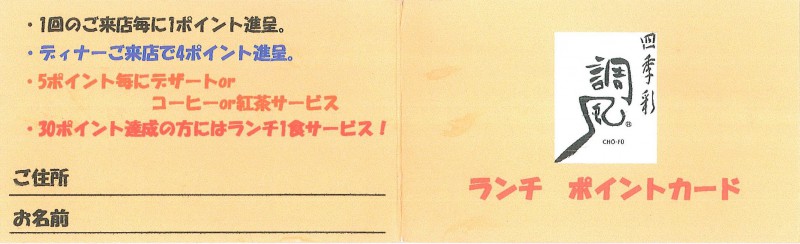 ・1回のご来店毎に1ポイント進呈。
・ディナーご来店で4ポイント進呈。
・5ポイント毎にデザートor
コーヒーor紅茶サービス
・30ポイント達成の方にはランチ1食サービス！
ご住所
お名前
四季彩
調風
CHŌ-FŪ
ランチ ポイントカード